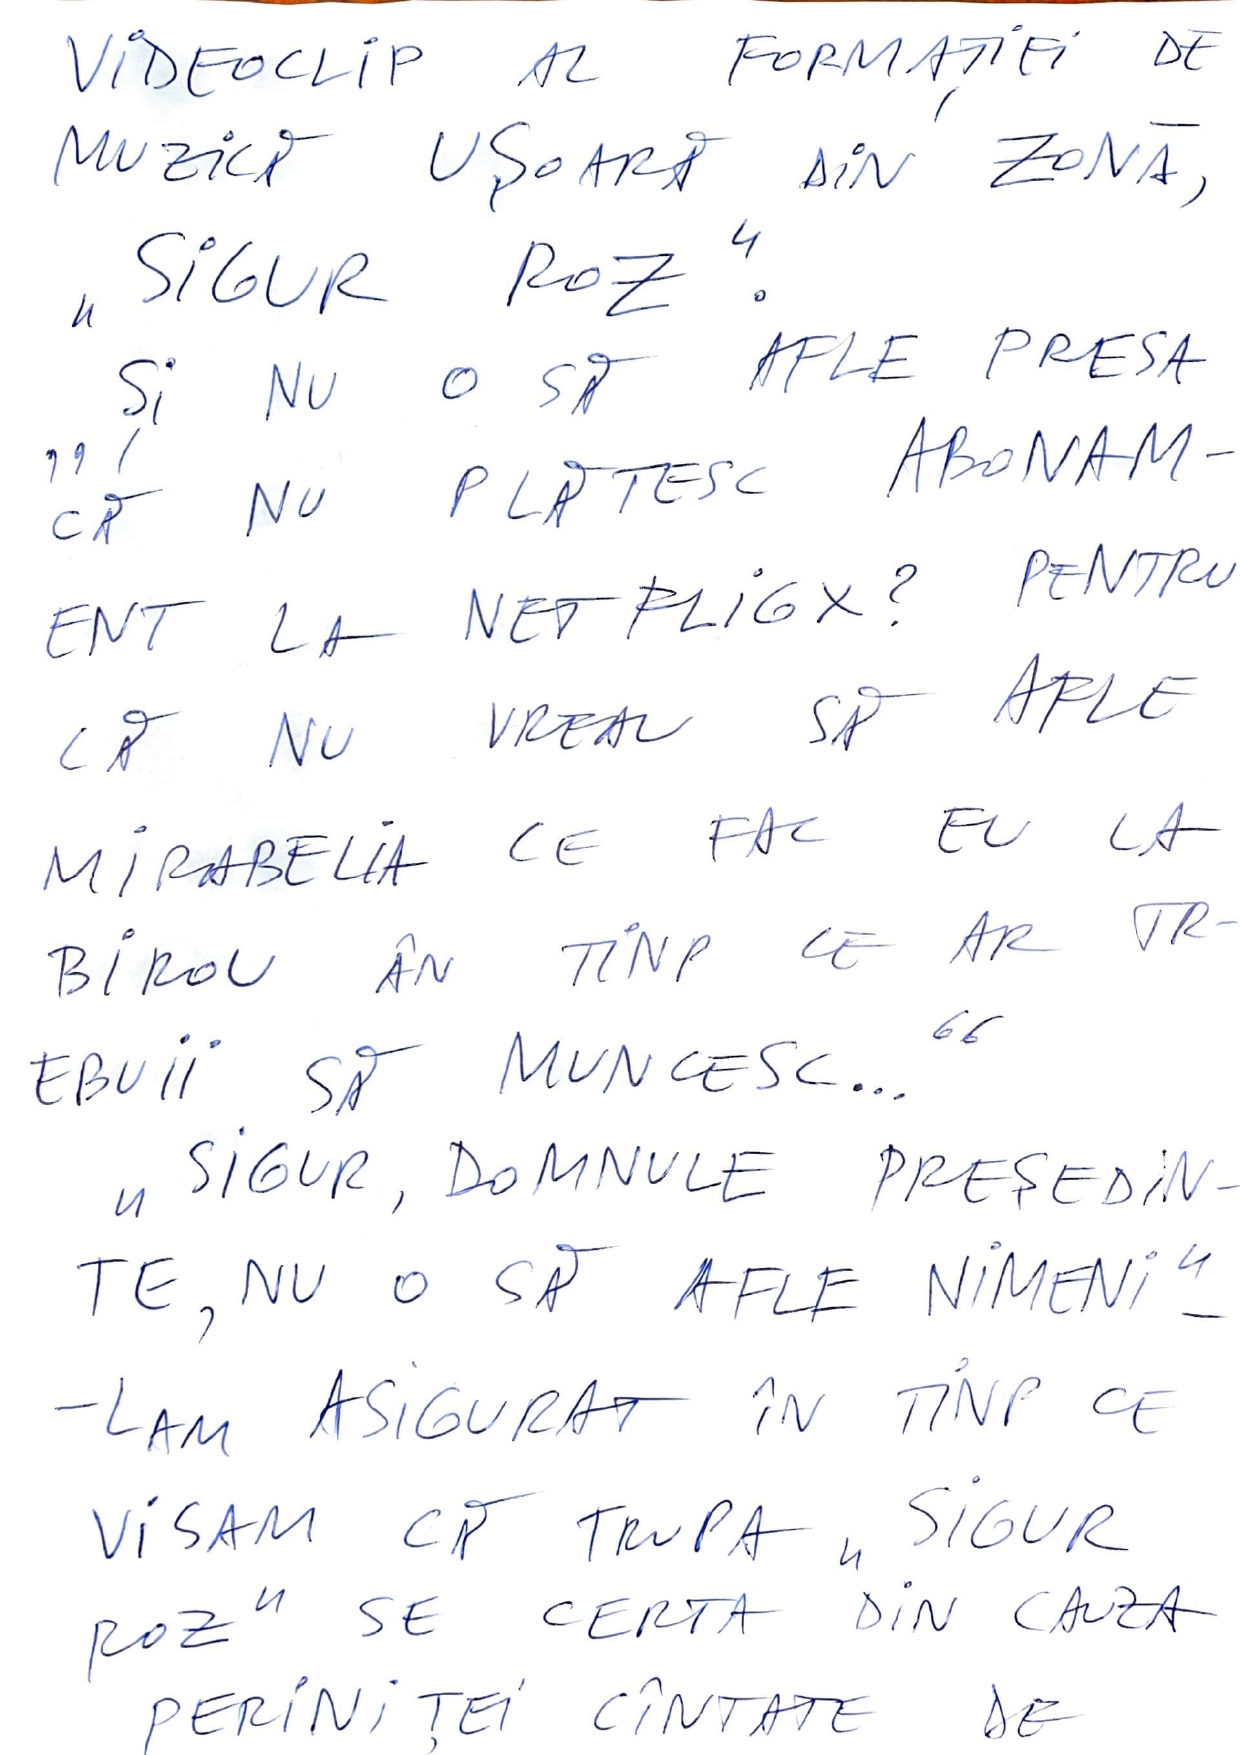 VIDEOCLIP AL FORMAȚIEI DE
MUZICĂ UȘOARĂ DIN ZONĂ,
„SIGUR ROZ”.
„ȘI NU O SĂ AFLE PRESA
CĂ NU PLĂTESC ABONAM-
ENT LA NETFLIGX? PENTRU
CĂ NU VREAU SĂ AFLE
MIRABELIA CE FAC EU LA
BIROU ÂN TINP CE AR TR-
EBUII SĂ MUNCESC...”
„SIGUR, DOMNULE PREȘEDIN-
TE, NU O SĂ AFLE NIMENI” -
-LAM ASIGURAT ÎN TINP CE
VISAM CĂ TRUPA „SIGUR
ROZ” SE CERTA DIN CAUZA
PERINIȚEI CÎNTATE DE